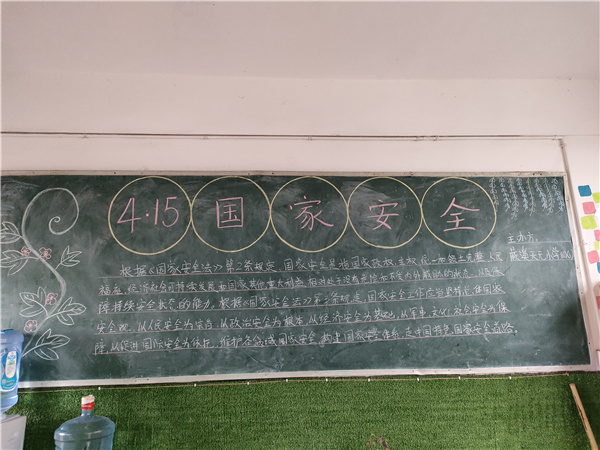 4·15 国 家 安 全
主办方:
根据《国家安全法》第2条规定,国家安全是指国家政权、主权、统一和领土完整、人民
福祉、经济社会可持续发展和国家其他重大利益相对处于没有危险和不受内外威胁的状态,以及保
障持续安全状态的能力。根据《国家安全法》第3条规定,国家安全工作应当坚持总体国家
安全观,以人民安全为宗旨,以政治安全为根本,以经济安全为基础,以军事、文化、社会安全为保
障,以促进国际安全为依托,维护各领域国家安全,构建国家安全体系,走中国特色国家安全道路。